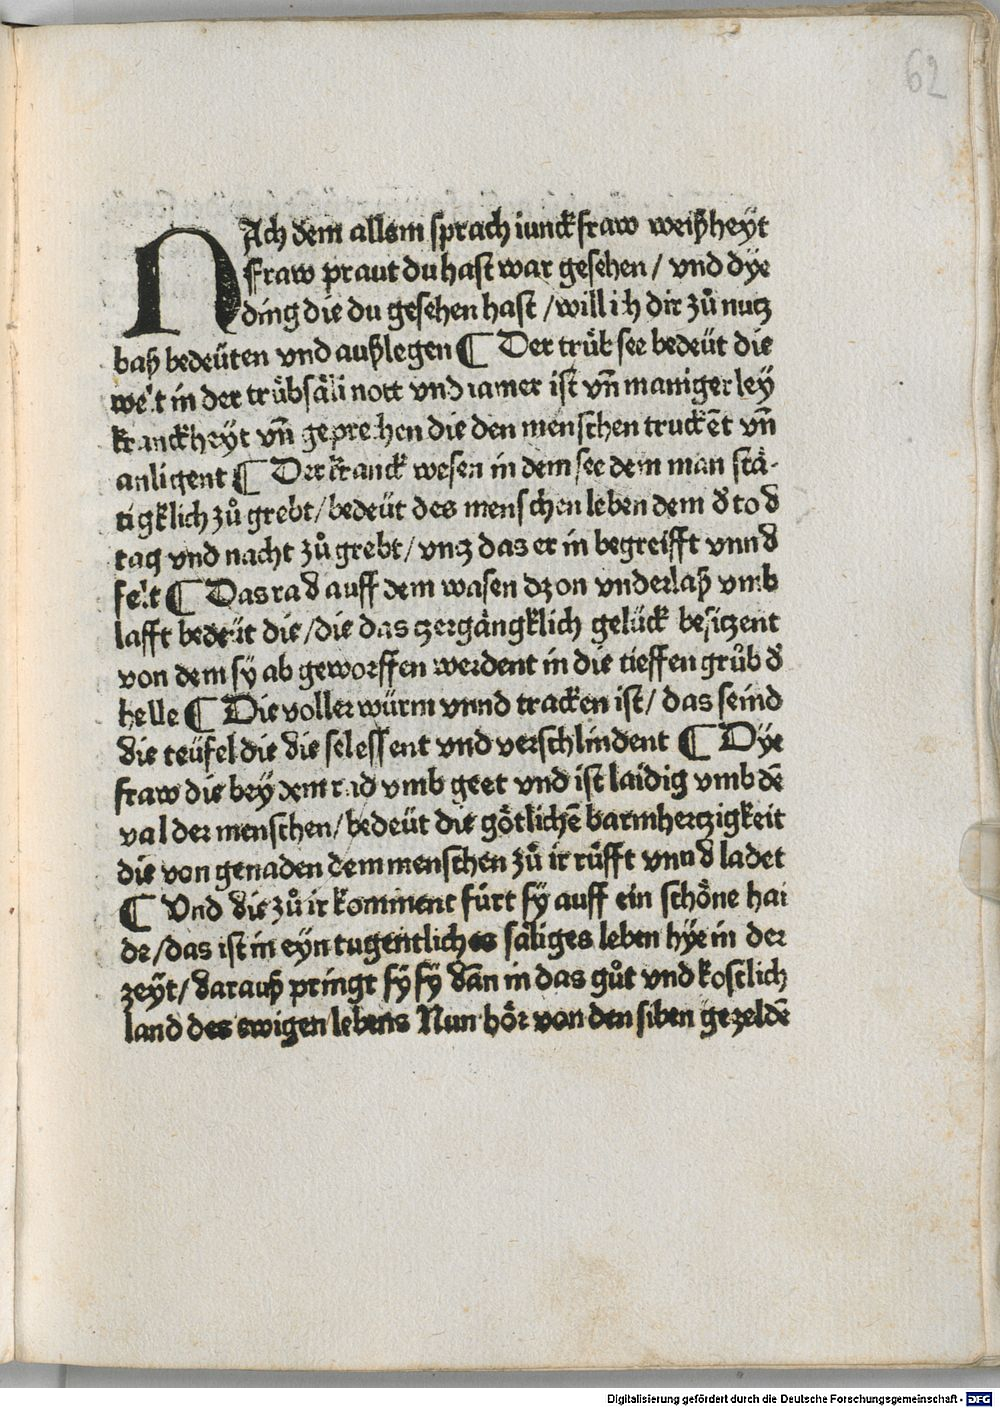 62
NAch dem allem sprach iunckfraw weißheyt
fraw praut du hast war gesehen / vnd dye
ding die du gesehen hast / will ich dir zů nutz
baß bedeüten vnd außlegen ¶ Der trůb see bedeüt die
welt in der trůbsäli nott vnd iamer ist vñ maniger ley
kranckheyt vñ geprechen die den menschen truckēt vñ
anligent ¶ Der kranck wesen in dem see dem man stä-
tigklich zů grebt / bedeüt des menschen leben dem d tod
tag vnd nacht zů grebt / vntz das er in begreifft vnnd
felt ¶ Das rad auff dem wasen dz on vnderlaß vmb
lafft bedeüt die / die das zergängklich gelück besitzent
von dem sy ab geworffen werdent in die tieffen grůb d
helle ¶ Die voller würm vnnd tracken ist / das seind
die teüfel die die sel essent vnd verschlindent ¶ Dye
fraw die bey dem rad vmb geet vnd ist laidig vmb dē
val der menschen / bedeüt die götlichē barmhertzigkeit
die von genaden dem menschen zů ir rüfft vnnd ladet
¶ Vnd die zů ir komment fürt sy auff ein schöne hai
de / das ist in eyn tugentliches säliges leben hye in der
zeyt / darauß pringt sy sy dān in das gůt vnd kostlich
land des ewigen lebens Nun hör von den siben gezeldē
Digitalisierung gefördert durch die Deutsche Forschungsgemeinschaft - DFG